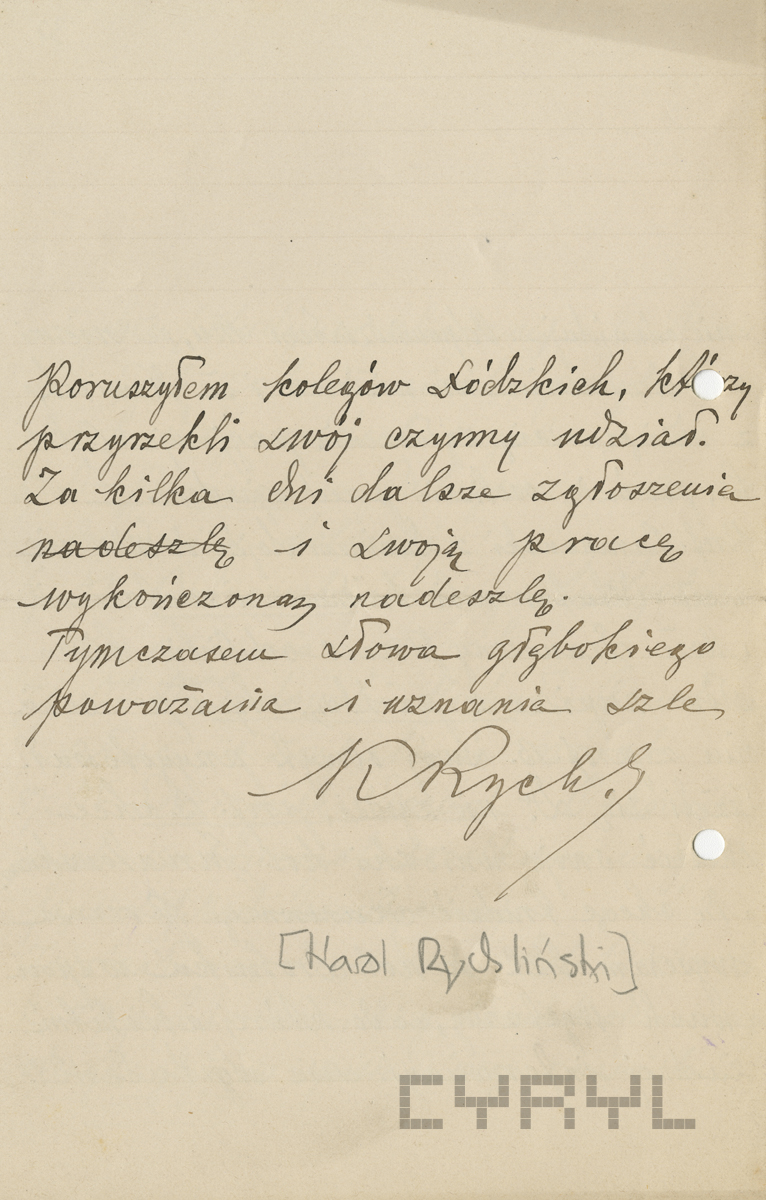 Poruszyłem kolegów Łódzkich, którzy
przyrzekli swój czynny udział.
Za kilka dni dalsze zgłoszenia
nadeszlę i swoją pracę
wykończoną nadeszlę.
Tymczasem słowa głębokiego
poważania i uznania szle
K Rych.
[Karol Rychliński]
CYRYL